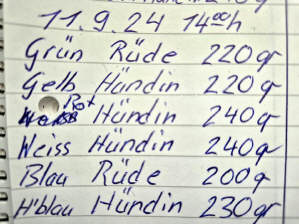 11.9.24 14ººh
Grün Rüde 220gr
Gelb Hündin 220gr
Rot Hündin 240gr
Weiss Hündin 240gr
Blau Rüde 200g
H'blau Hündin 230gr